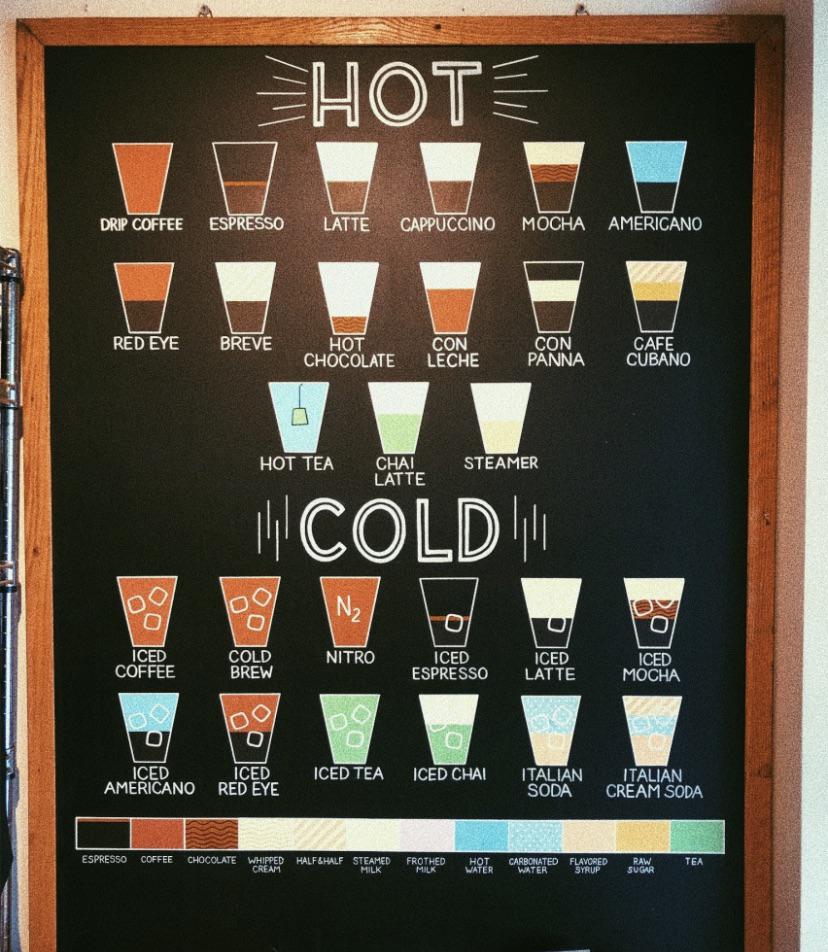 HOT
DRIP COFFEE ESPRESSO LATTE CAPPUCCINO MOCHA AMERICANO
RED EYE BREVE HOT CHOCOLATE CON LECHE CON PANNA CAFE CUBANO
HOT TEA CHAI LATTE STEAMER
COLD
N2
ICED COFFEE COLD BREW NITRO ICED ESPRESSO ICED LATTE ICED MOCHA
ICED AMERICANO ICED RED EYE ICED TEA ICED CHAI ITALIAN SODA ITALIAN CREAM SODA
ESPRESSO COFFEE CHOCOLATE WHIPPED CREAM HALF&HALF STEAMED MILK FROTHED MILK HOT WATER CARBONATED WATER FLAVORED SYRUP RAW SUGAR TEA